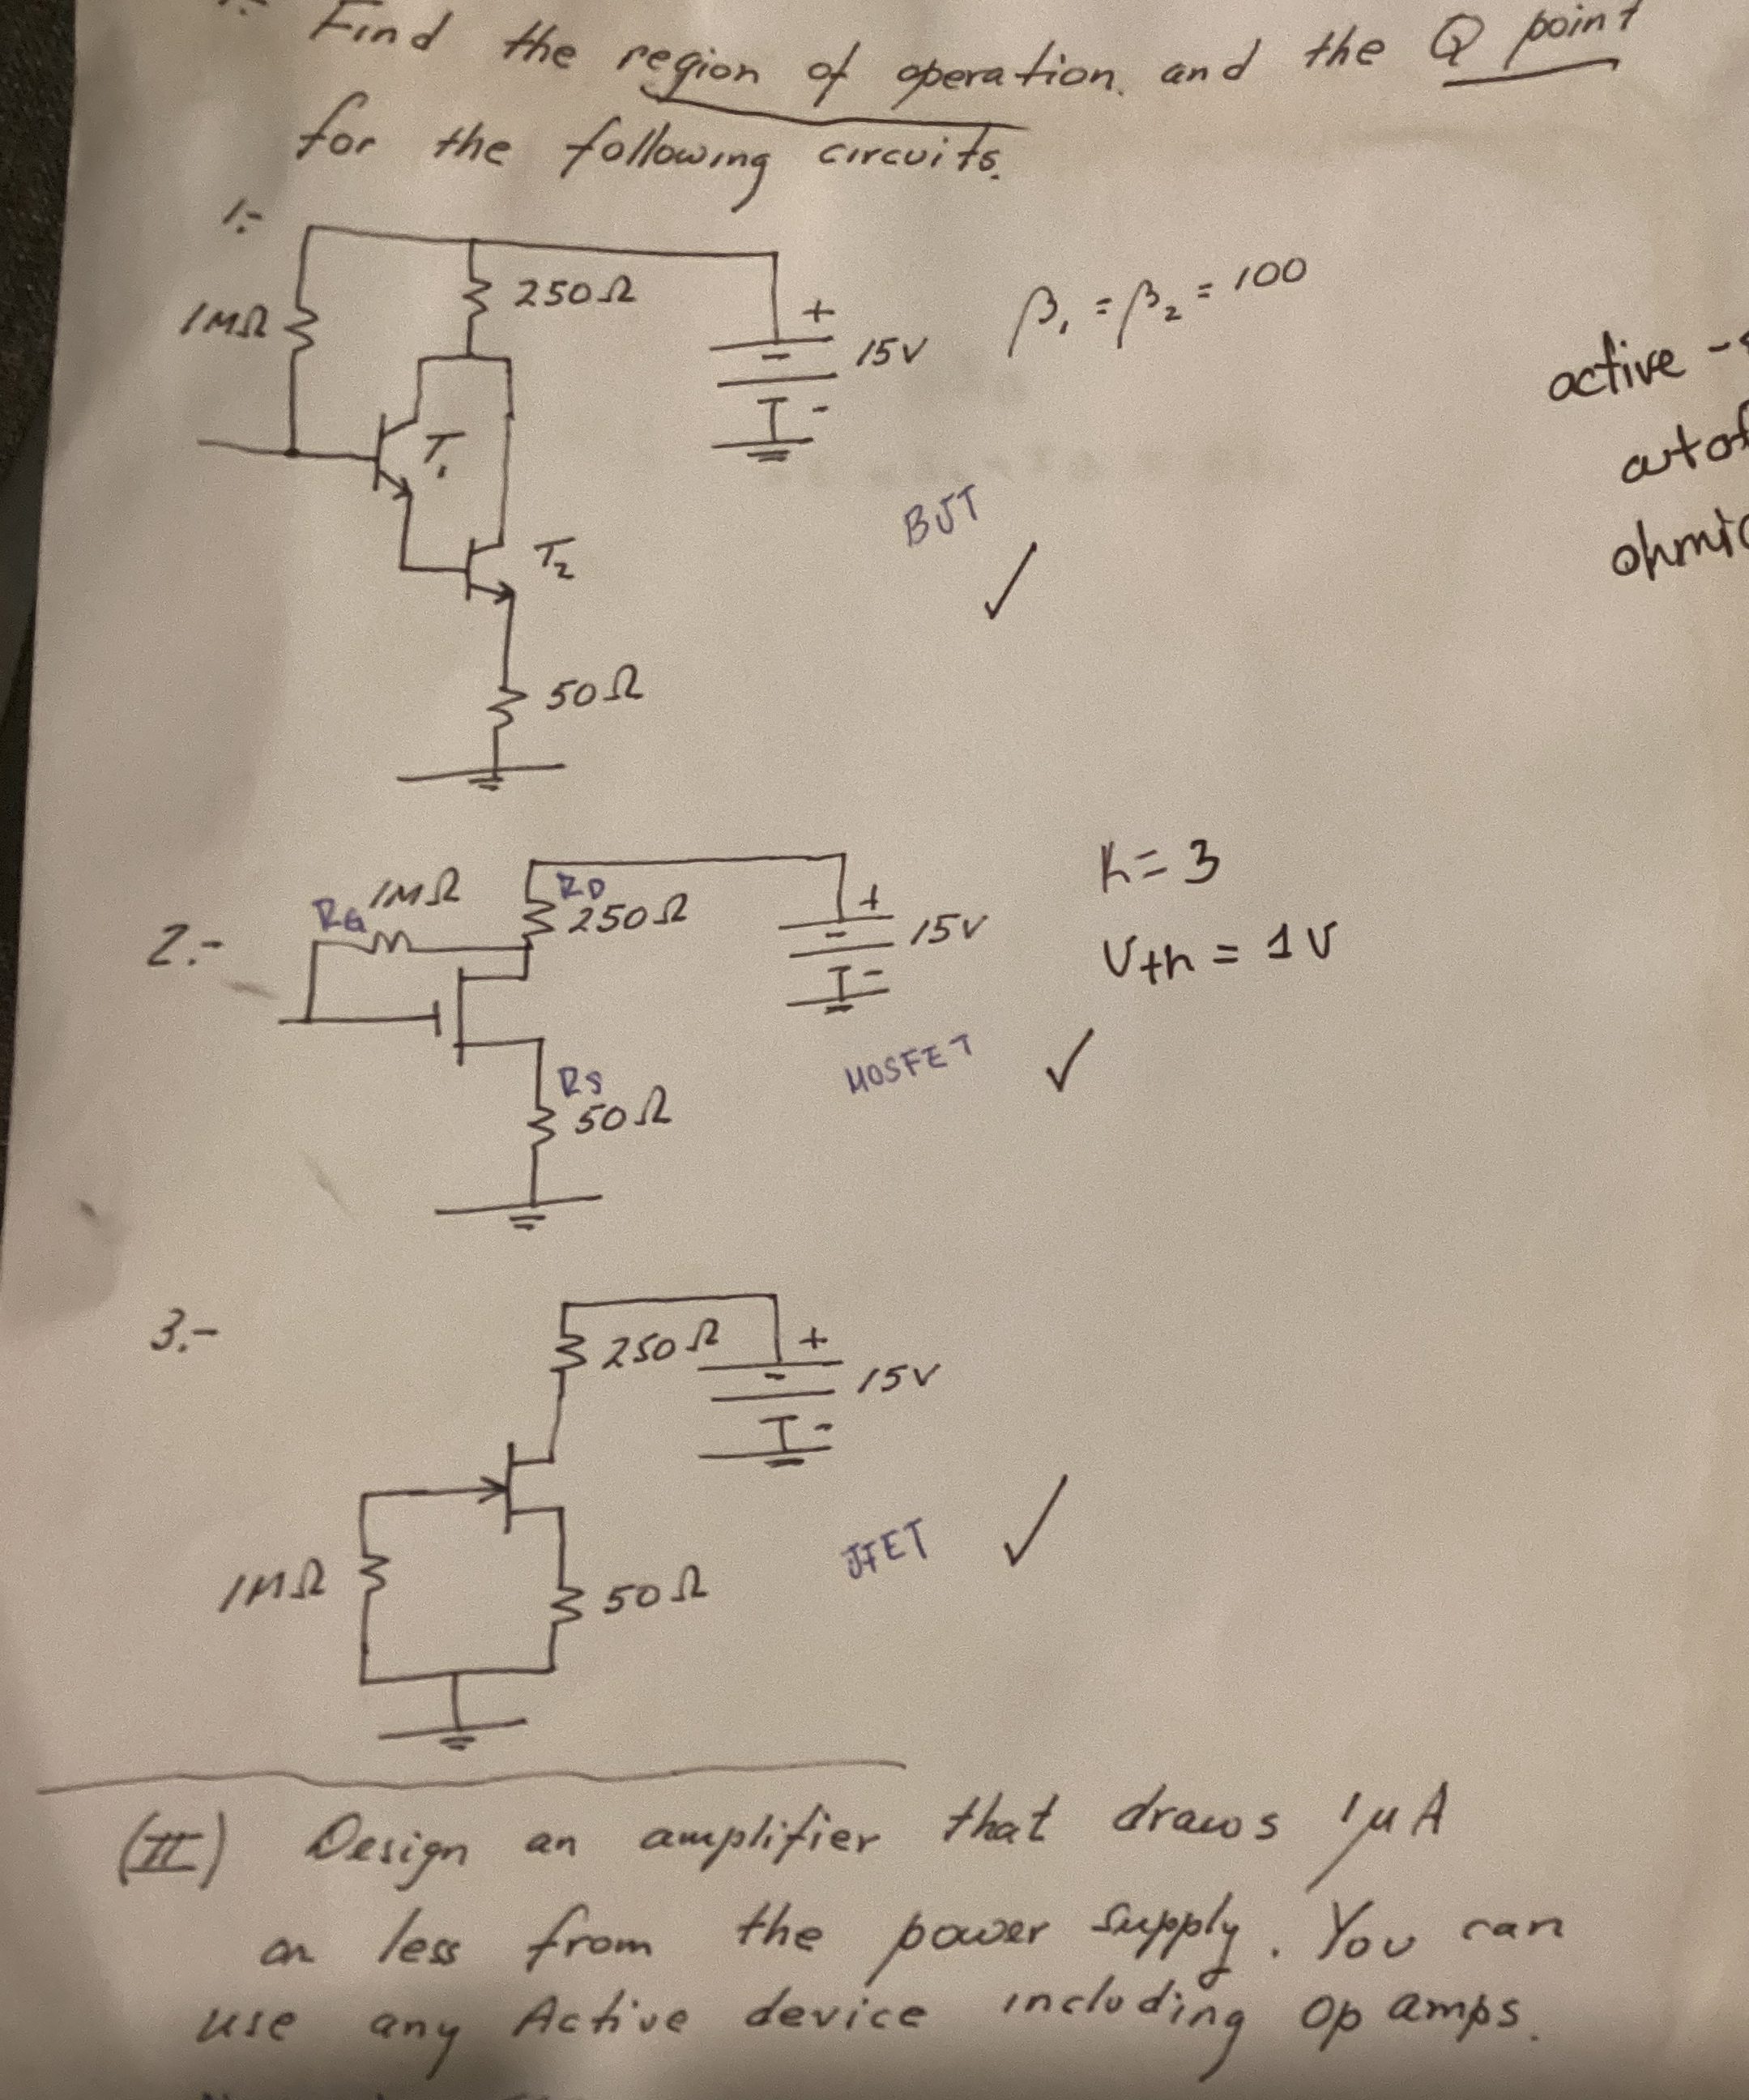 Find the region of operation. and the Q point
for the following circuits.
1:-
1MΩ
250Ω
+
-
15V
-
β₁ = β₂ = 100
active -
T₁
T₂
BJT
50Ω
2.-
RG 1MΩ
RD
250Ω
+
-
15V
-
K=3
Vth = 1V
MOSFET
RS
50Ω
3.-
250Ω
+
-
15V
-
1MΩ
50Ω
JFET
(II) Design an amplifier that draws 1μA
or less from the power supply. You can
use any Active device including Op amps.